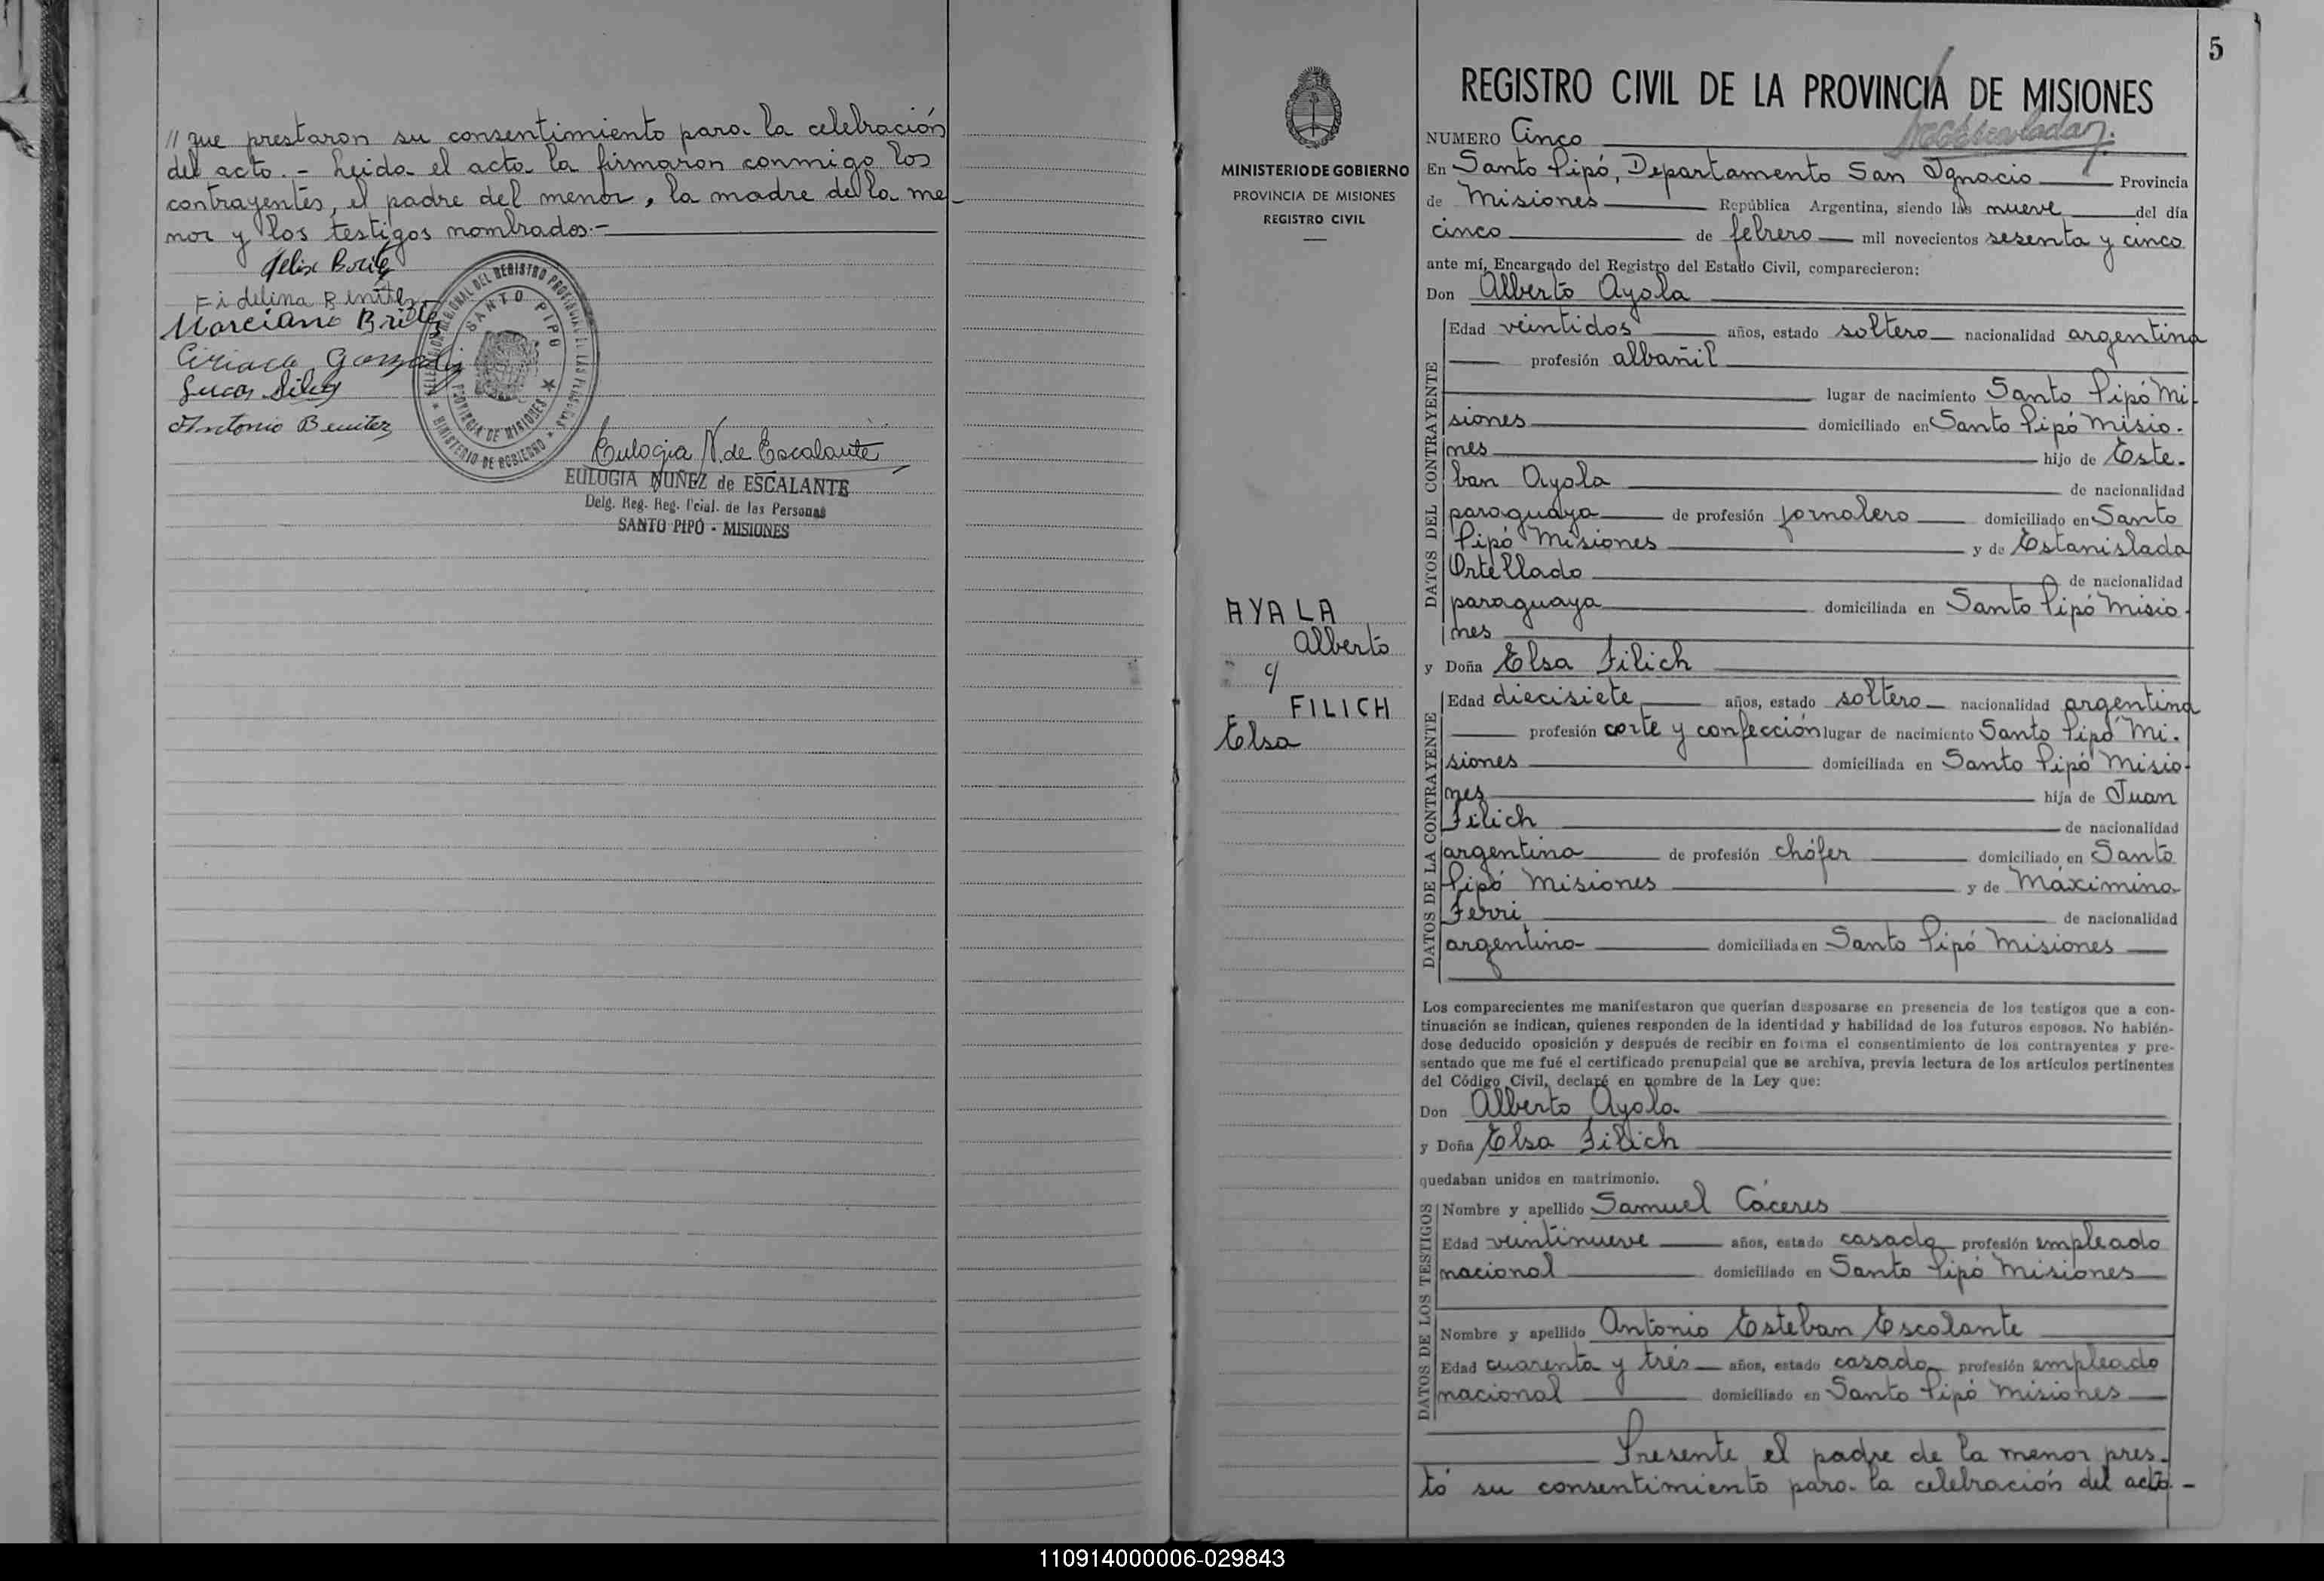 // que prestaron su consentimiento para la celebración
del acto. - Leida el acta la firmaron conmigo los
contrayentes, el padre del menor, la madre de la me-
nor y los testigos nombrados.-
Felix Britez
Fidelina Benítez
Marciano Britez
Ciriaco Gonzalez
Lucas
Antonio Benitez
SANTO PIPO
PROVINCIA DE MISIONES
MINISTERIO DE GOBIERNO
Eulogia N. de Escalante
EULOGIA NUÑEZ de ESCALANTE
Delg. Reg. Reg. P'cial. de las Personas
SANTO PIPÓ - MISIONES
MINISTERIO DE GOBIERNO
PROVINCIA DE MISIONES
REGISTRO CIVIL
AYALA
Alberto
c/
FILICH
Elsa
5
REGISTRO CIVIL DE LA PROVINCIA DE MISIONES
NUMERO Cinco
En Santo Pipó, Departamento San Ignacio Provincia
de Misiones República Argentina, siendo las nueve del día
cinco de febrero mil novecientos sesenta y cinco
ante mí, Encargado del Registro del Estado Civil, comparecieron:
Don Alberto Ayala
DATOS DEL CONTRAYENTE
Edad veintidos años, estado soltero nacionalidad argentina
profesión albañil
lugar de nacimiento Santo Pipó Mi-
siones domiciliado en Santo Pipó Misio-
nes hijo de Este-
ban Ayala de nacionalidad
paraguaya de profesión jornalero domiciliado en Santo
Pipó Misiones y de Estanislada
Ortellado de nacionalidad
paraguaya domiciliada en Santo Pipó Misio-
nes
y Doña Elsa Filich
DATOS DE LA CONTRAYENTE
Edad diecisiete años, estado soltero nacionalidad argentina
profesión corte y confección lugar de nacimiento Santo Pipó Mi-
siones domiciliada en Santo Pipó Misio-
nes hija de Juan
Filich de nacionalidad
argentina de profesión chófer domiciliado en Santo
Pipó Misiones y de Máximina
Ferri de nacionalidad
argentina domiciliada en Santo Pipó Misiones
Los comparecientes me manifestaron que querían desposarse en presencia de los testigos que a con-
tinuación se indican, quienes responden de la identidad y habilidad de los futuros esposos. No habién-
dose deducido oposición y después de recibir en forma el consentimiento de los contrayentes y pre-
sentado que me fué el certificado prenupcial que se archiva, previa lectura de los artículos pertinentes
del Código Civil, declaré en nombre de la Ley que:
Don Alberto Ayala
y Doña Elsa Filich
quedaban unidos en matrimonio.
DATOS DE LOS TESTIGOS
Nombre y apellido Samuel Cáceres
Edad veintinueve años, estado casado profesión empleado
nacional domiciliado en Santo Pipó Misiones
Nombre y apellido Antonio Esteban Escalante
Edad cuarenta y tres años, estado casado profesión empleado
nacional domiciliado en Santo Pipó Misiones
Presente el padre de la menor pres-
tó su consentimiento para la celebración del acto. -
110914000006-029843